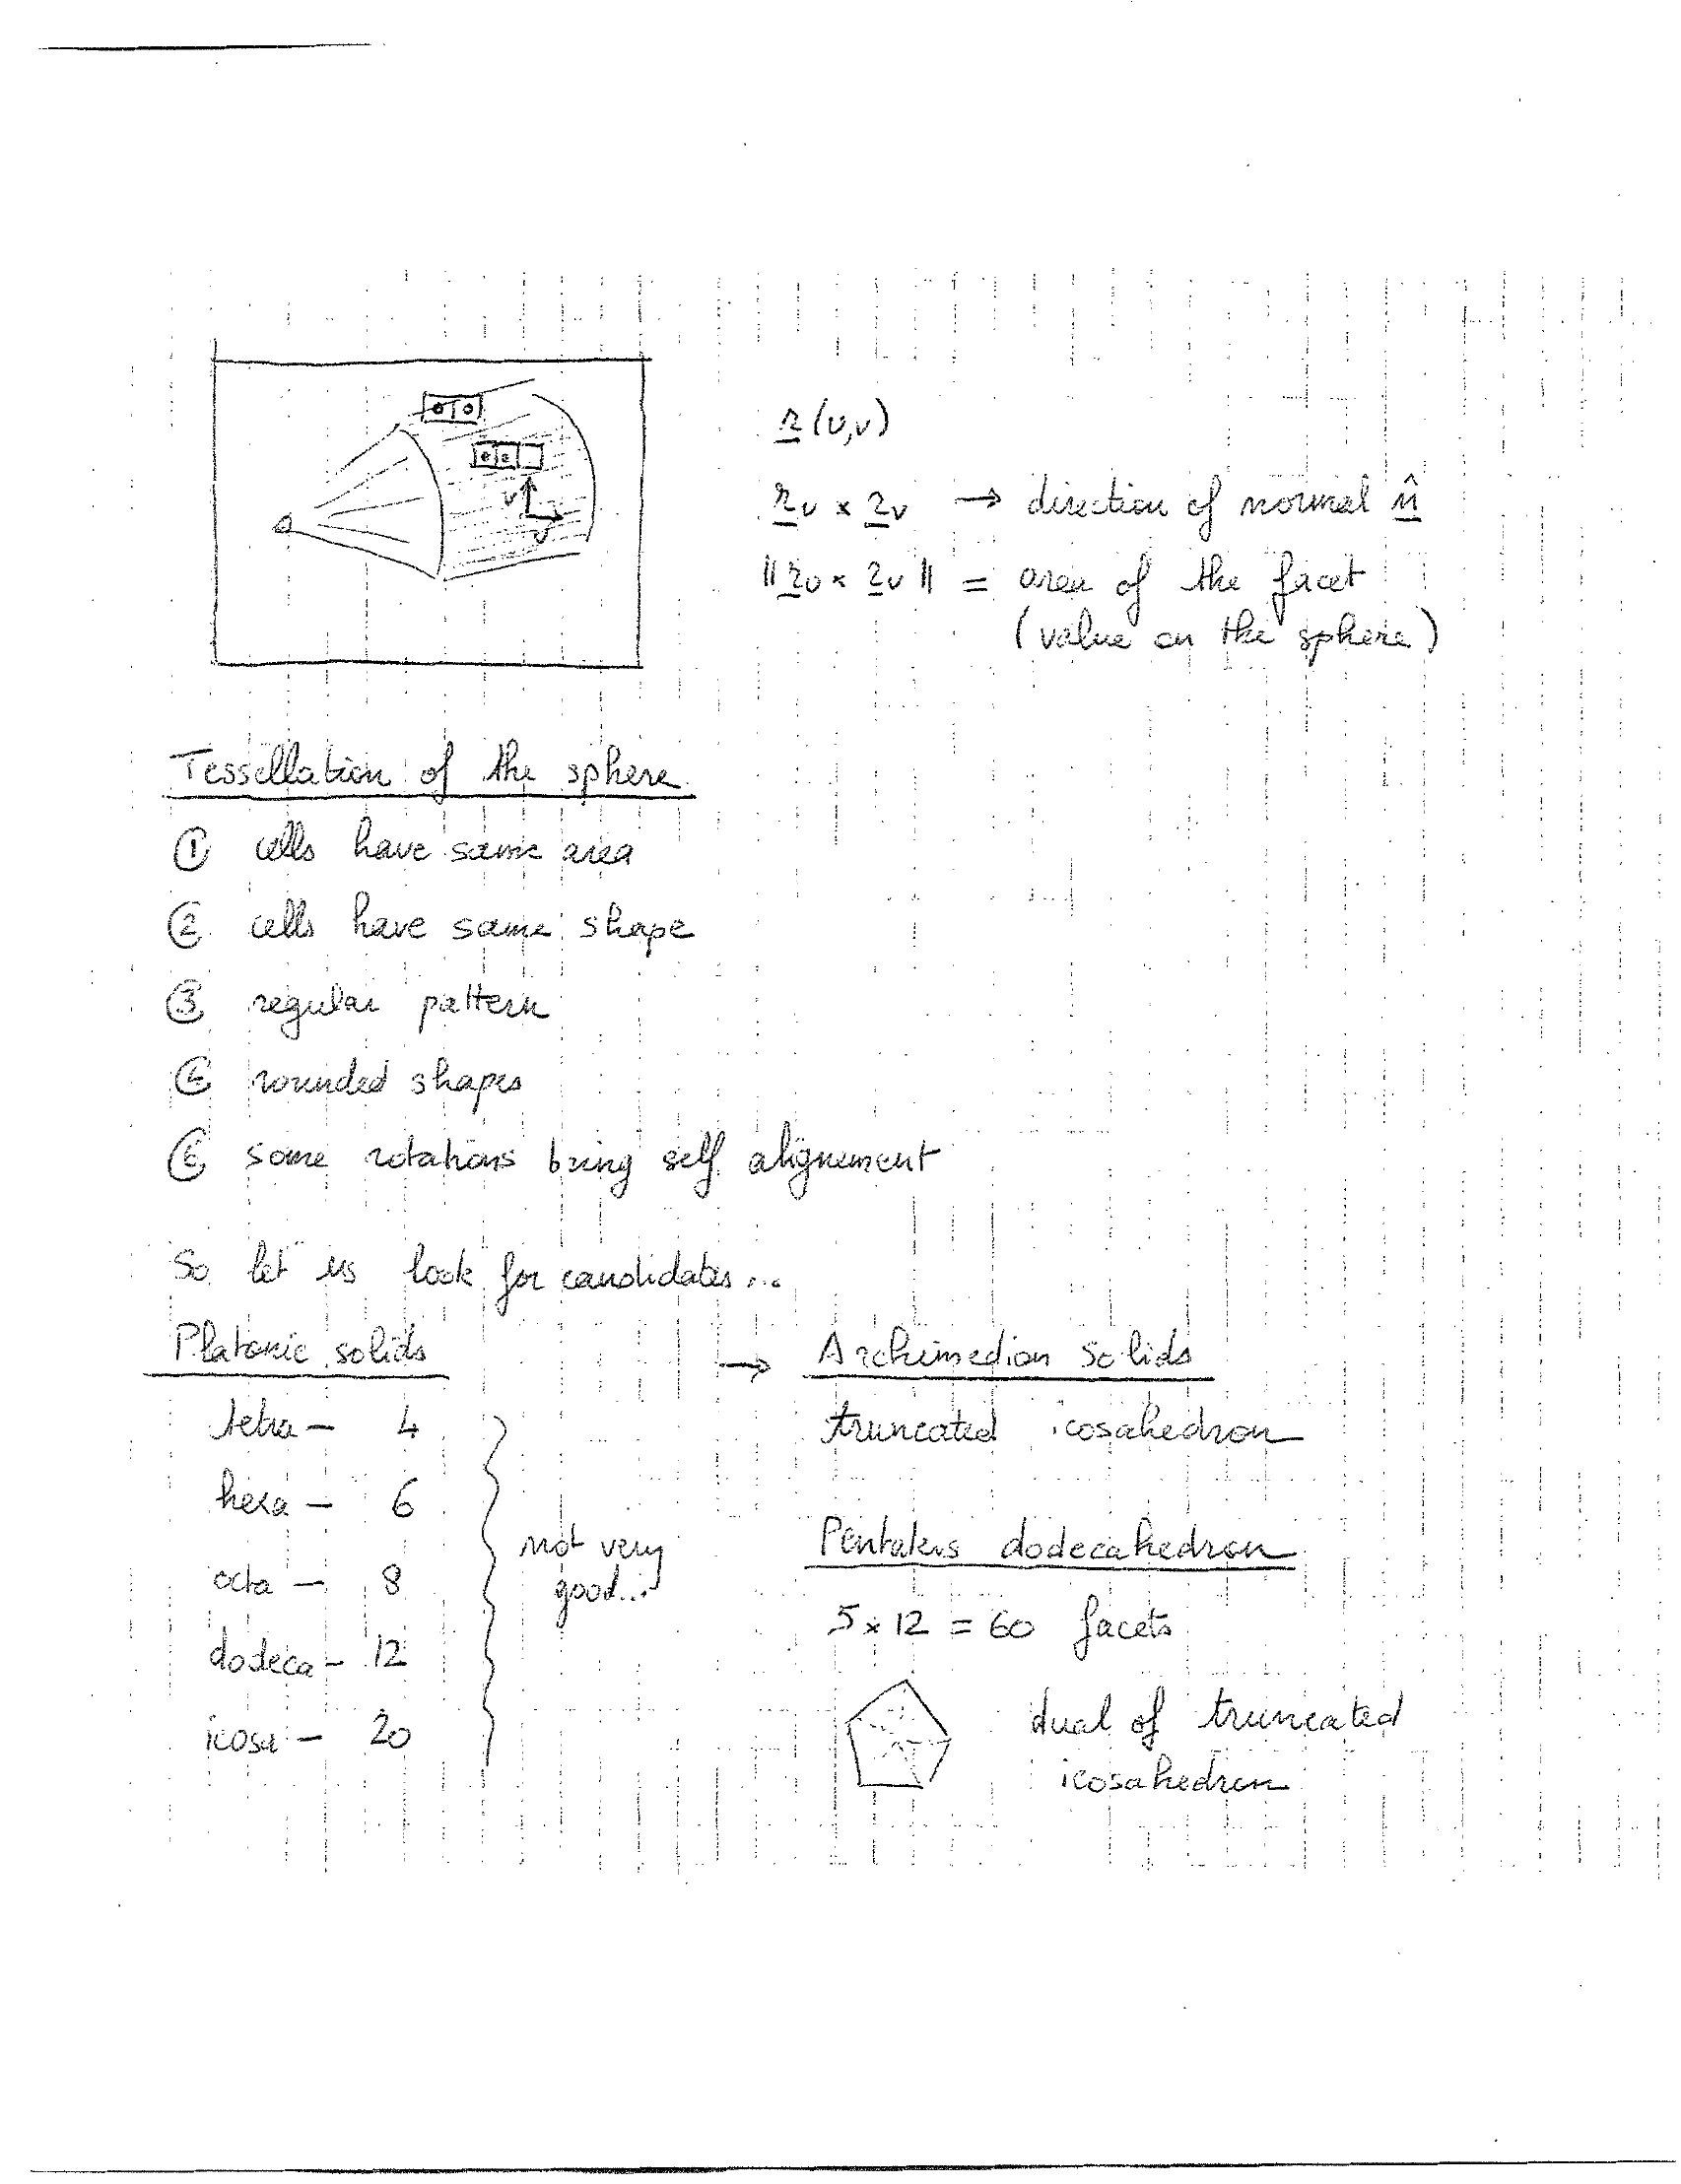 r(u,v)
r_u × r_v → direction of normal n̂
||r_u × r_v|| = area of the facet
(value on the sphere)
v
u
Tessellation of the sphere
① cells have same area
② cells have same shape
③ regular pattern
④ rounded shapes
⑤ some rotations bring self alignement
So let us look for candidates...
Platonic solids
tetra — 4
hexa — 6
octa — 8
dodeca — 12
icosa — 20
not very
good...
→ Archimedian solids
truncated icosahedron
Pentakis dodecahedron
5 × 12 = 60 facets
dual of truncated
icosahedron